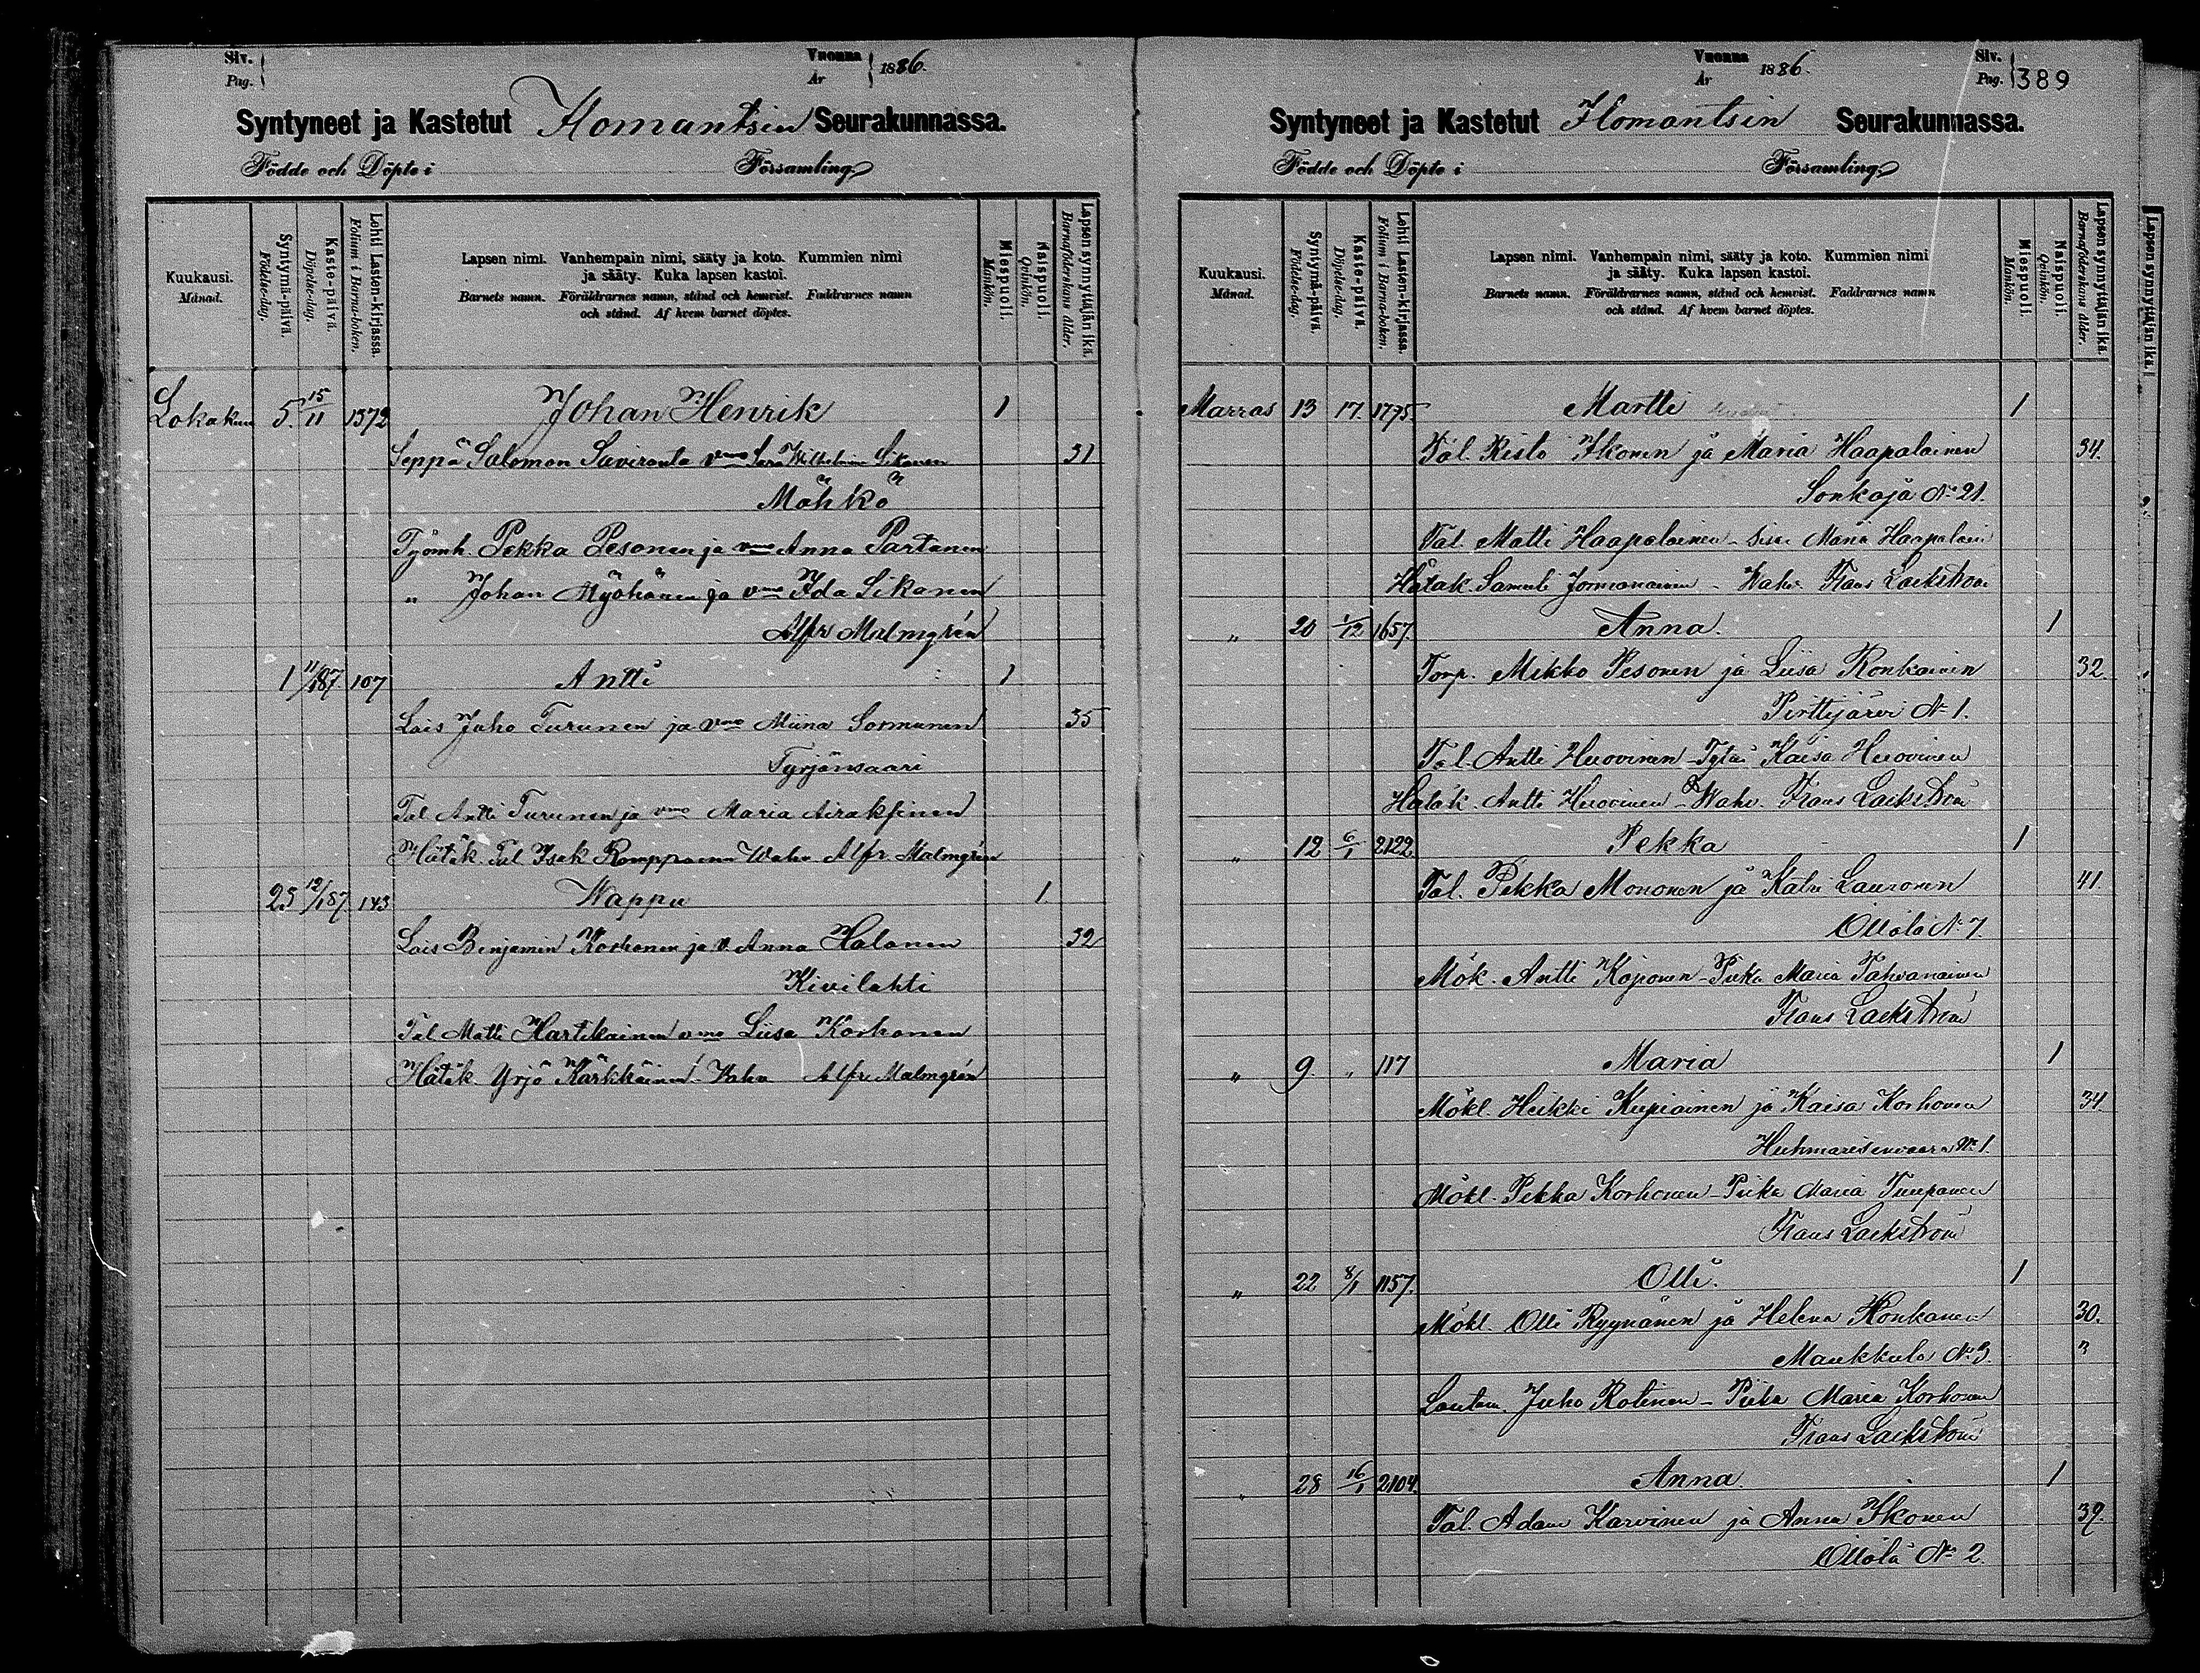 Siv. Pag.
Vuonna År 1886.
Syntyneet ja Kastetut Ilomantsin Seurakunnassa.
Födde och Döpte i Församling.
Kuukausi. Månad.
Syntymä-päivä. Födelse-dag.
Kaste-päivä. Döpelse-dag.
Lehti Lasten-kirjassa. Folium i Barna-boken.
Lapsen nimi. Vanhempain nimi, sääty ja koto. Kummien nimi
ja sääty. Kuka lapsen kastoi.
Barnets namn. Föräldrarnes namn, stånd och hemvist. Faddrarnes namn
och stånd. Af hvem barnet döptes.
Miespuoli. Mankön.
Naispuoli. Qvinkön.
Lapsen synnyttäjän ikä. Barnaföderskans ålder.
Lokakuu 5. 15/11 1372 Johan Henrik 1
Seppä Salomon Saviranta vmo Sara Wilhelmina Sikanen 31
Möhkö
Työmh. Pekka Pesonen ja vmo Anna Partanen
" Johan Myöhänen ja vmo Ida Sikanen
Alfr Malmgrén
1 11/1 87 107 Antti 1
Lois Juho Turunen ja vmo Miina Sormunen 35
Tyrjänsaari
Tal Antti Turunen ja vmo Maria Airaksinen
Hätäk. Tal Isak Romppainen Wahv Alfr. Malmgrén
25 12/1 87 143 Wappu 1
Lois Benjamin Korhonen ja v Anna Halonen 32
Kivilahti
Tal Matti Hartikainen vmo Liisa Korhonen
Hätäk. Yrjö Kärkkäinen Wahv Alfr Malmgrén
Vuonna År 1886.
Siv. Pag. 389
Syntyneet ja Kastetut Ilomantsin Seurakunnassa.
Födde och Döpte i Församling.
Kuukausi. Månad.
Syntymä-päivä. Födelse-dag.
Kaste-päivä. Döpelse-dag.
Lehti Lasten-kirjassa. Folium i Barna-boken.
Lapsen nimi. Vanhempain nimi, sääty ja koto. Kummien nimi
ja sääty. Kuka lapsen kastoi.
Barnets namn. Föräldrarnes namn, stånd och hemvist. Faddrarnes namn
och stånd. Af hvem barnet döptes.
Miespuoli. Mankön.
Naispuoli. Qvinkön.
Lapsen synnyttäjän ikä. Barnaföderskans ålder.
Lapsen synnyttäjän ikä.
Marras 13 17. 1795 Martti 1
Tal. Risto Ikonen ja Maria Haapalainen 34.
Sonkaja No 21.
Tal. Matti Haapalainen - Maria Haapalain
Hätäk. Samuli Jormanainen - Wahv. Frans Lackström
" 20 1/12 1657. Anna. 1
Torp. Mikko Pesonen ja Liisa Ronkainen 32.
Pirttijärvi No 1.
Tal. Antti Huovinen - Tytär Kaisa Huovinen
Hätäk. Antti Huovinen - Wahv. Frans Lackström
" 12 6/1 2122 Pekka 1
Tal. Pekka Mononen ja Katri Lauronen 41.
Ollola No 7.
Mök. Antti Koponen - Piika Maria Pahvanainen
Frans Lackström
" 9. " 117 Maria 1
Mökl. Heikki Kupiainen ja Kaisa Korhonen 34.
Huhmarisenvaara No 1.
Mökl. Pekka Korhonen - Piika Maria Turpanen
Frans Lackström
" 22 8/1 1157. Olli. 1
Mökl. Olli Ryynänen ja Helena Honkanen 30.
Maukkula No 3. "
Lautam. Juho Rotinen - Piika Maria Korhonen
Frans Lackström
" 28 16/1 2104. Anna. 1
Tal. Adam Karvinen ja Anna Ikonen 39.
Ollola No 2.